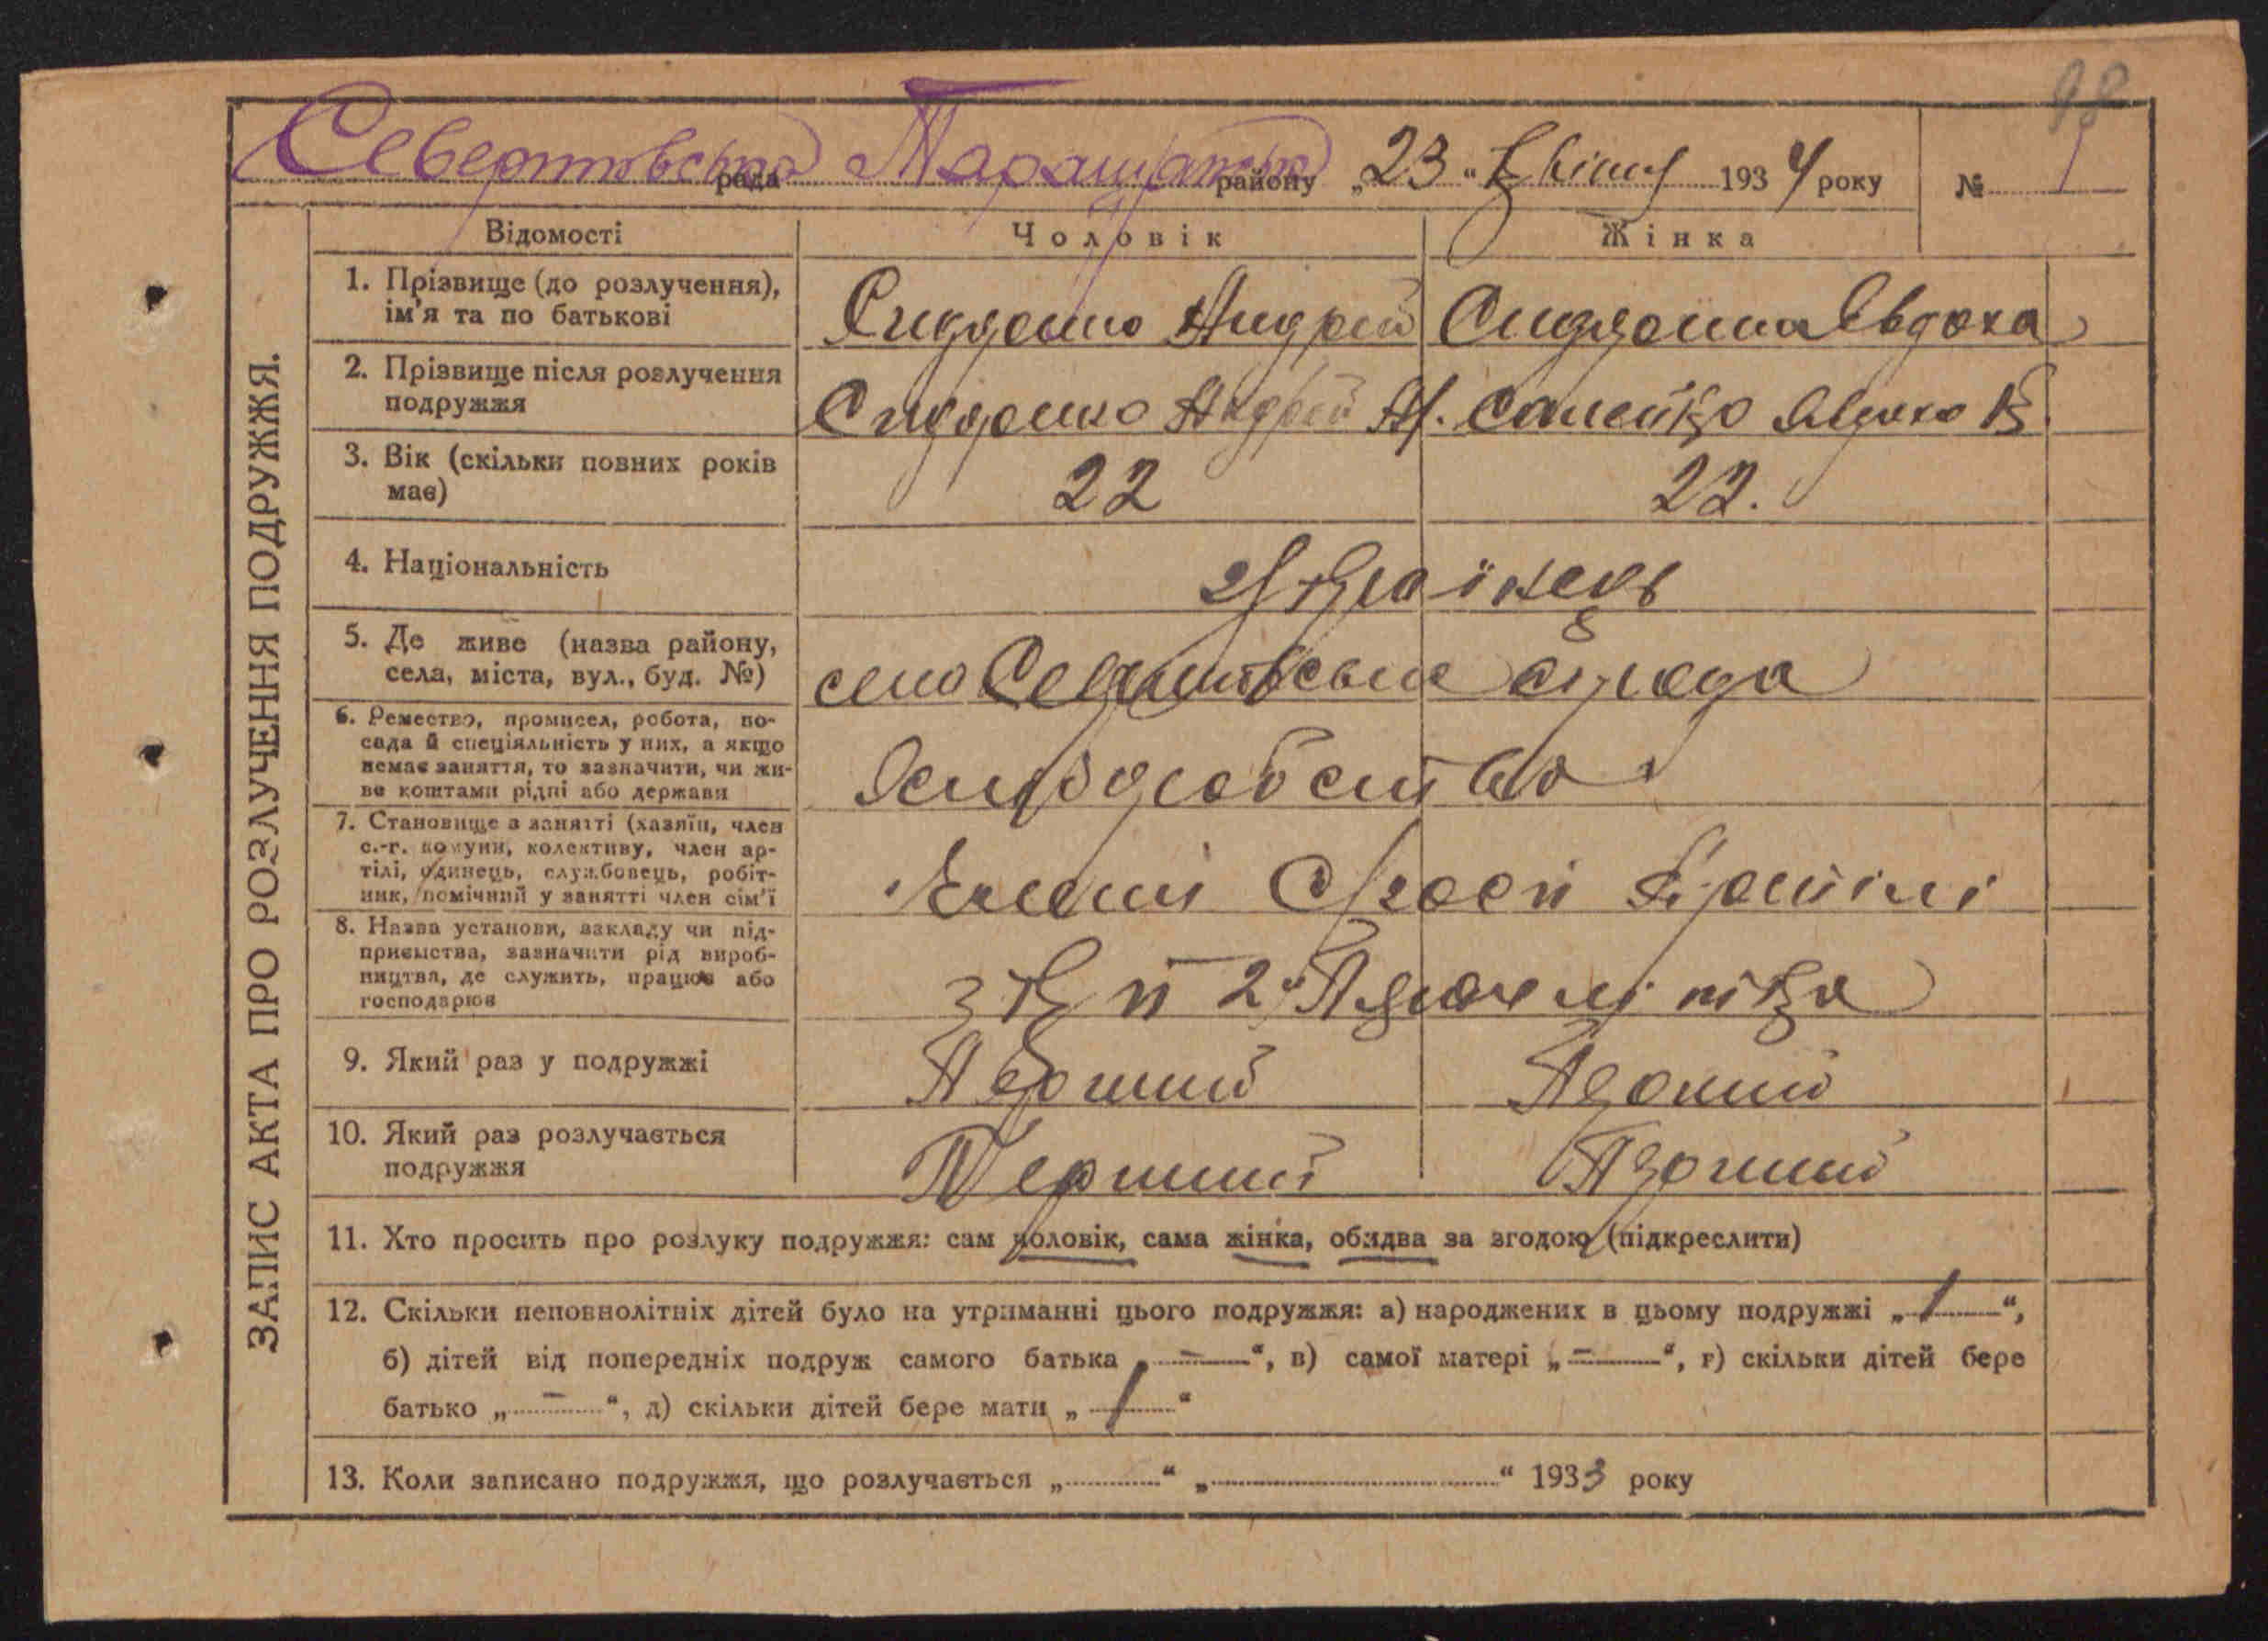 98
рада Таращанська району „23“ Квітня 1934 року № 1
Відомості Чоловік Жінка
ЗАПИС АКТА ПРО РОЗЛУЧЕННЯ ПОДРУЖЖЯ.
1. Прізвище (до розлучення),
ім'я та по батькові
Андрій Евдоха
2. Прізвище після розлучення
подружжя
Андрій А.
3. Вік (скільки повних років
має)
22 22.
4. Національність
Українець
5. Де живе (назва району,
села, міста, вул., буд. №)
село
6. Ремество, промисел, робота, по-
сада й спеціяльність у них, а якщо
немає заняття, то зазначити, чи жи-
ве коштами рідні або держави
7. Становище в занятті (хазяїн, член
с.-г. комуни, колективу, член ар-
тілі, одинець, службовець, робіт-
ник, помічний у занятті член сім'ї
8. Назва установи, закладу чи під-
приємства, зазначити рід вироб-
ництва, де служить, працює або
господарює
2
9. Який раз у подружжі
Перший Перший
10. Який раз розлучається
подружжя
Перший Перший
11. Хто просить про розлуку подружжя: сам чоловік, сама жінка, обидва за згодою (підкреслити)
12. Скільки неповнолітніх дітей було на утриманні цього подружжя: а) народжених в цьому подружжі „1“,
б) дітей від попередніх подруж самого батька „–“, в) самої матері „–“, г) скільки дітей бере
батько „–“, д) скільки дітей бере мати „1“
13. Коли записано подружжя, що розлучається „“ „“ 1933 року